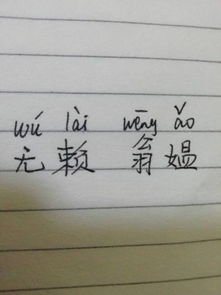 wú lài wēng ǎo
无赖 翁媪